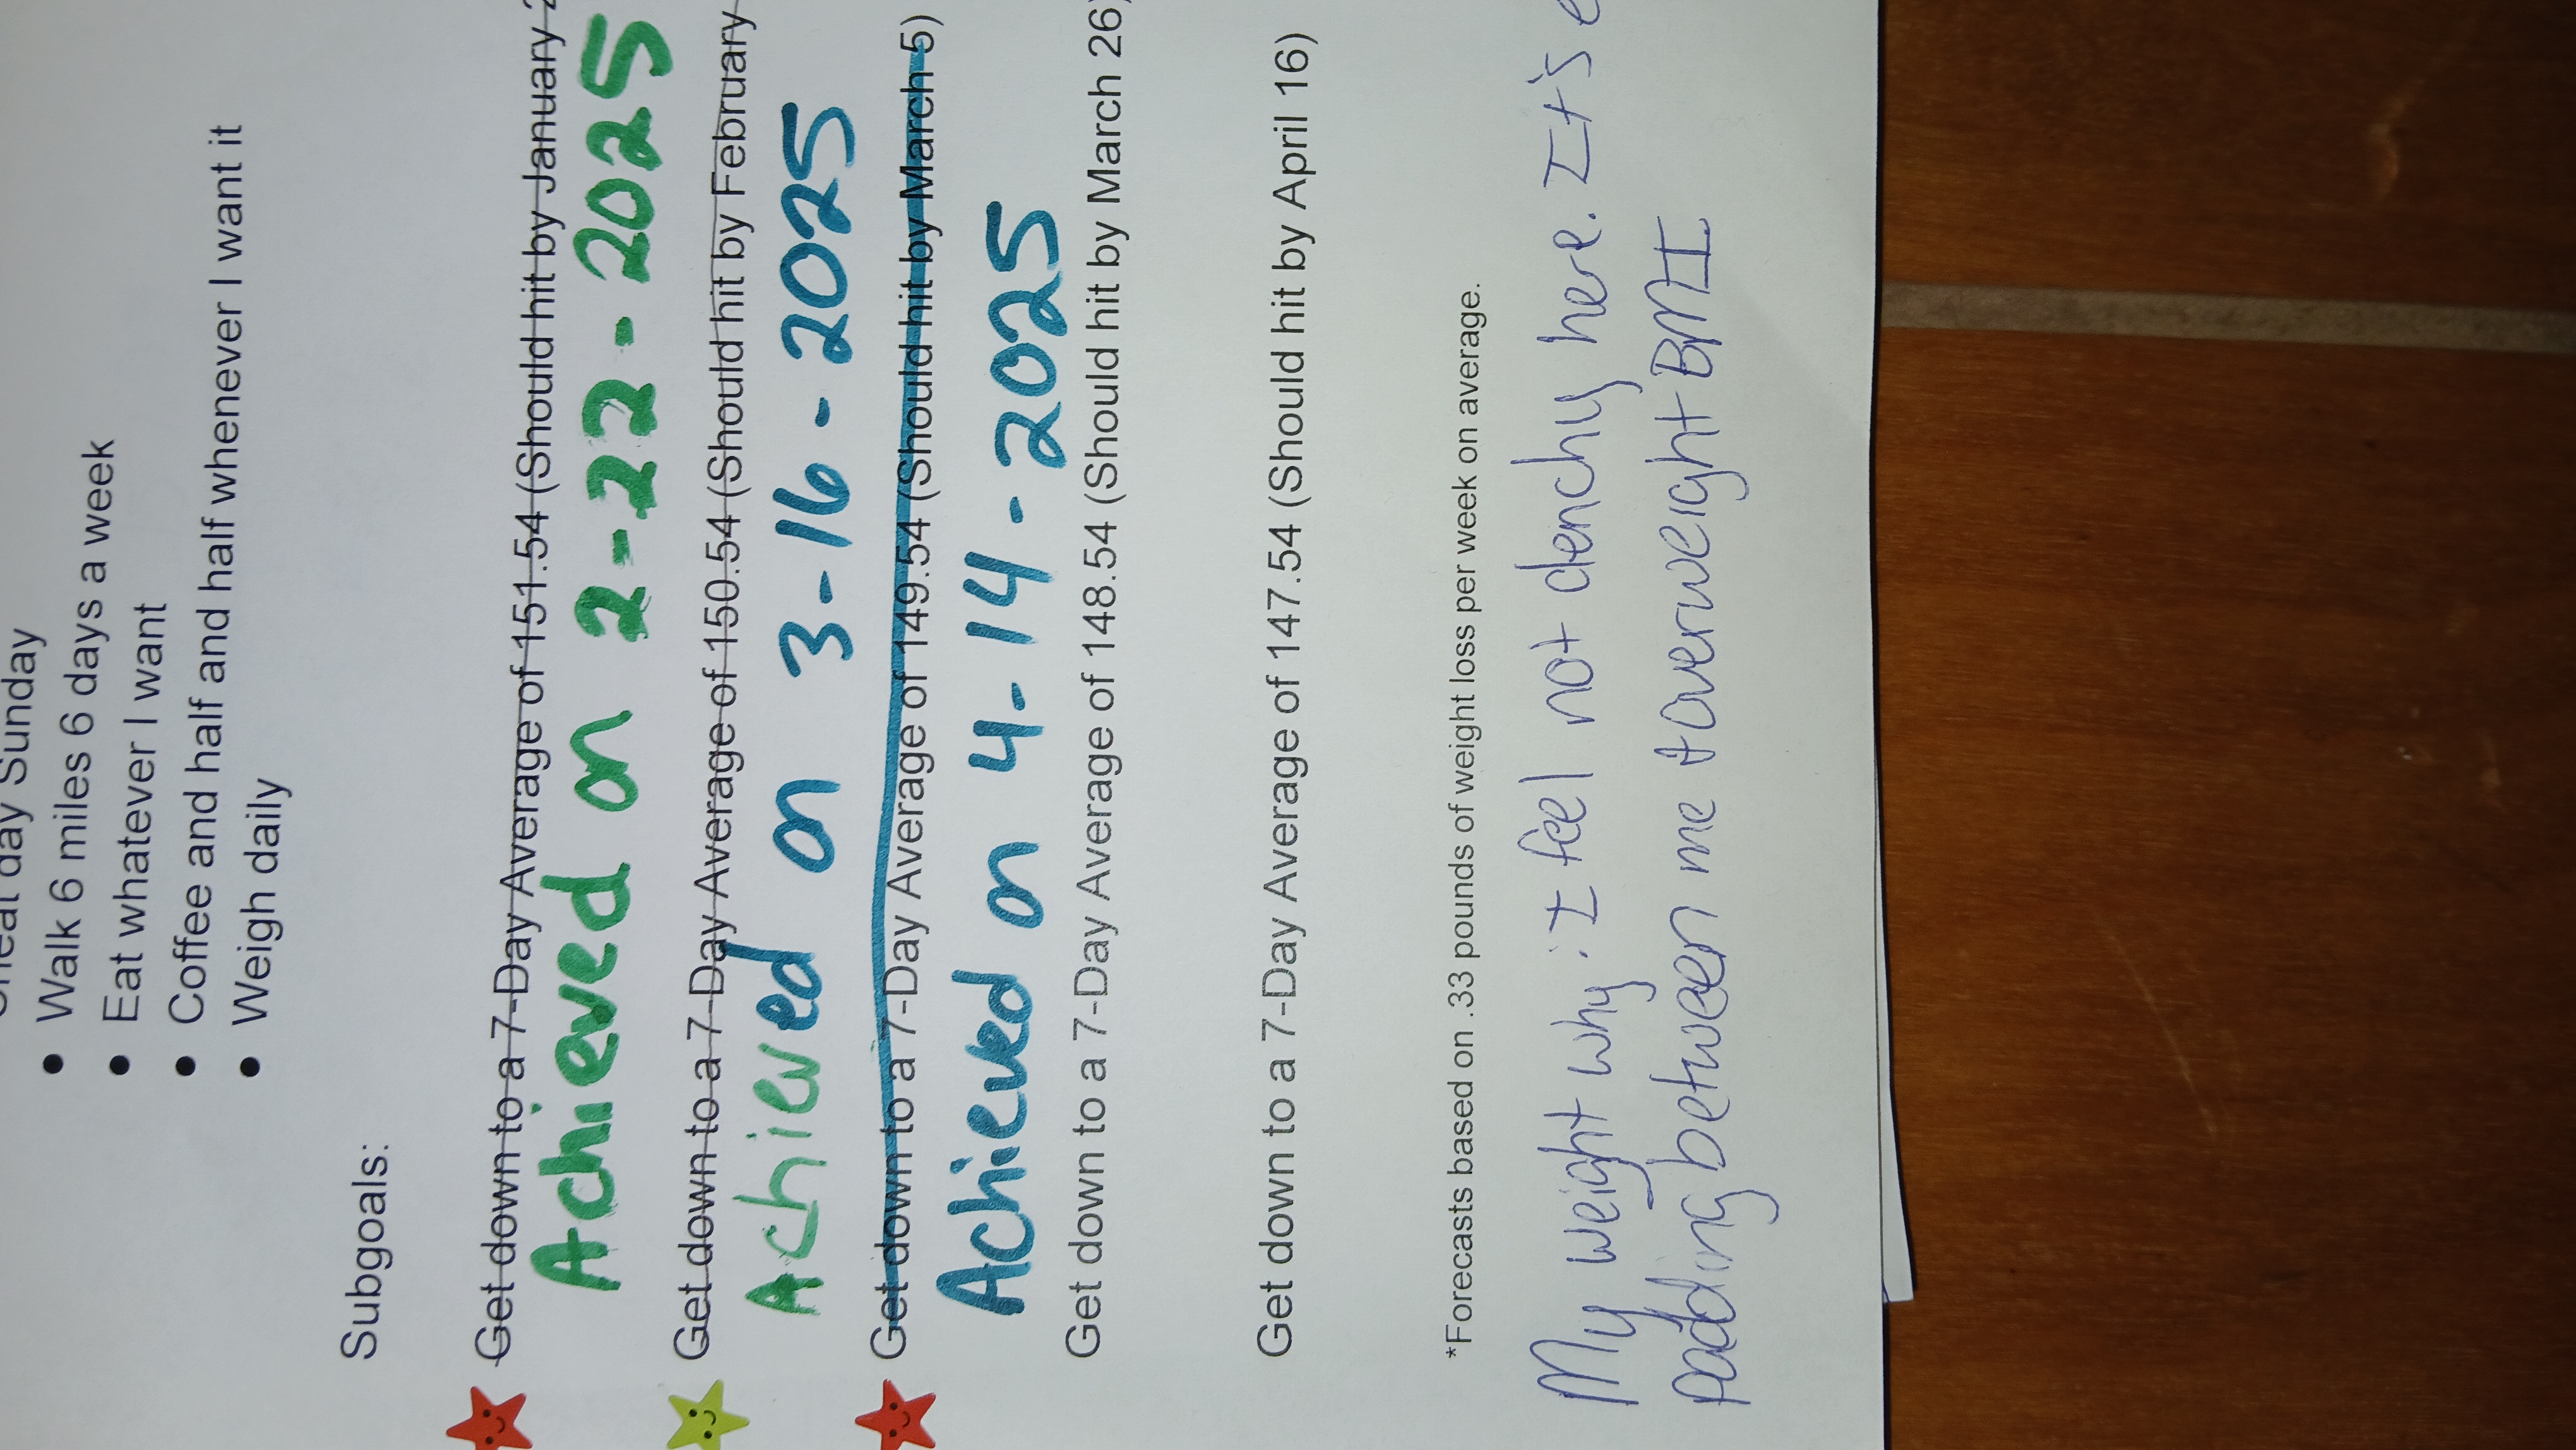 Cheat day Sunday
• Walk 6 miles 6 days a week
• Eat whatever I want
• Coffee and half and half whenever I want it
• Weigh daily
Subgoals:
Get down to a 7-Day Average of 151.54 (Should hit by January
Achieved on 2-22-2025
Get down to a 7-Day Average of 150.54 (Should hit by February
Achieved on 3-16-2025
Get down to a 7-Day Average of 149.54 (Should hit by March 5)
Achieved on 4-14-2025
Get down to a 7-Day Average of 148.54 (Should hit by March 26)
Get down to a 7-Day Average of 147.54 (Should hit by April 16)
*Forecasts based on .33 pounds of weight loss per week on average.
My weight why: I feel not denchy here. It's
padding between me + overweight BMI